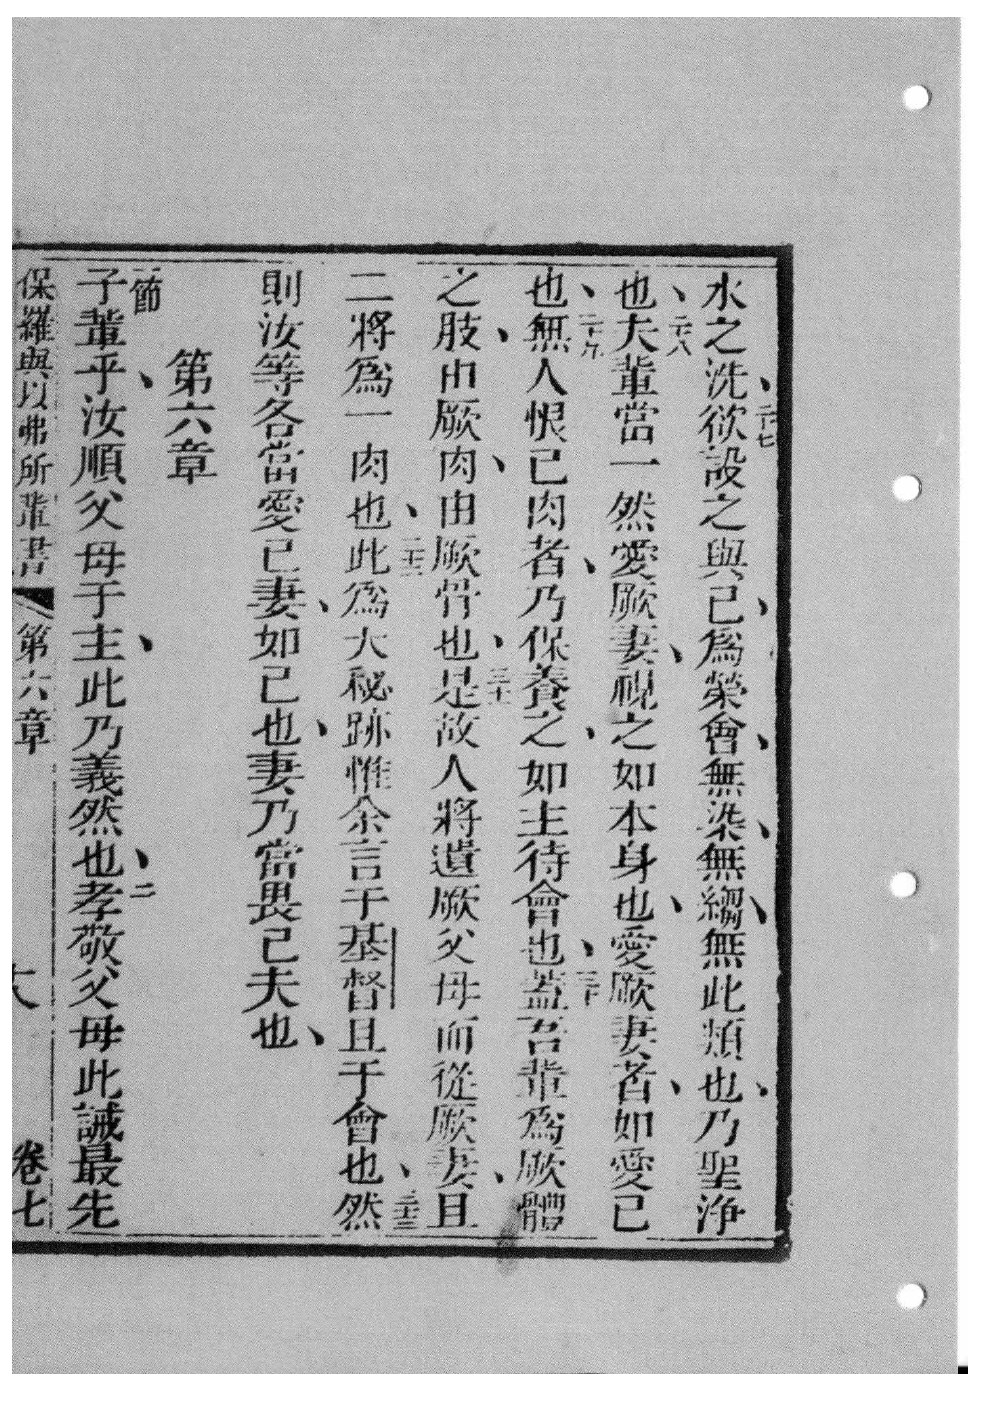 水之洗、二十七欲設之與己、爲榮會、無染、無縐、無此類也、乃聖浄
也、二十八夫輩當一然愛厥妻、視之如本身也、愛厥妻者、如愛己
也、二十九無人恨己肉者、乃保養之、如主待會也、三十蓋吾輩爲厥體
之肢、由厥肉、由厥骨也、三十一是故人將遺厥父母而從厥妻、且
二將爲一肉也、三十二此爲大秘跡惟余言于基督且于會也、三十三然
則汝等各當愛己妻、如己也、妻乃當畏己夫也、
第六章
一節子輩乎、汝順父母于主、此乃義然也、二孝敬父母此誡最先
保羅與以弗所輩書 第六章 卷七